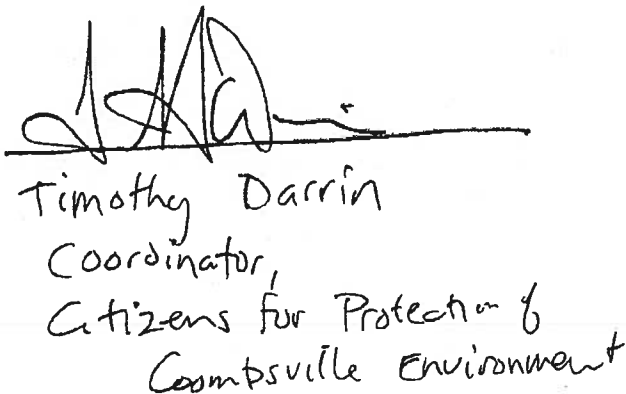 Timothy Darrin
Coordinator,
Citizens for Protection of
Coombsville Environment